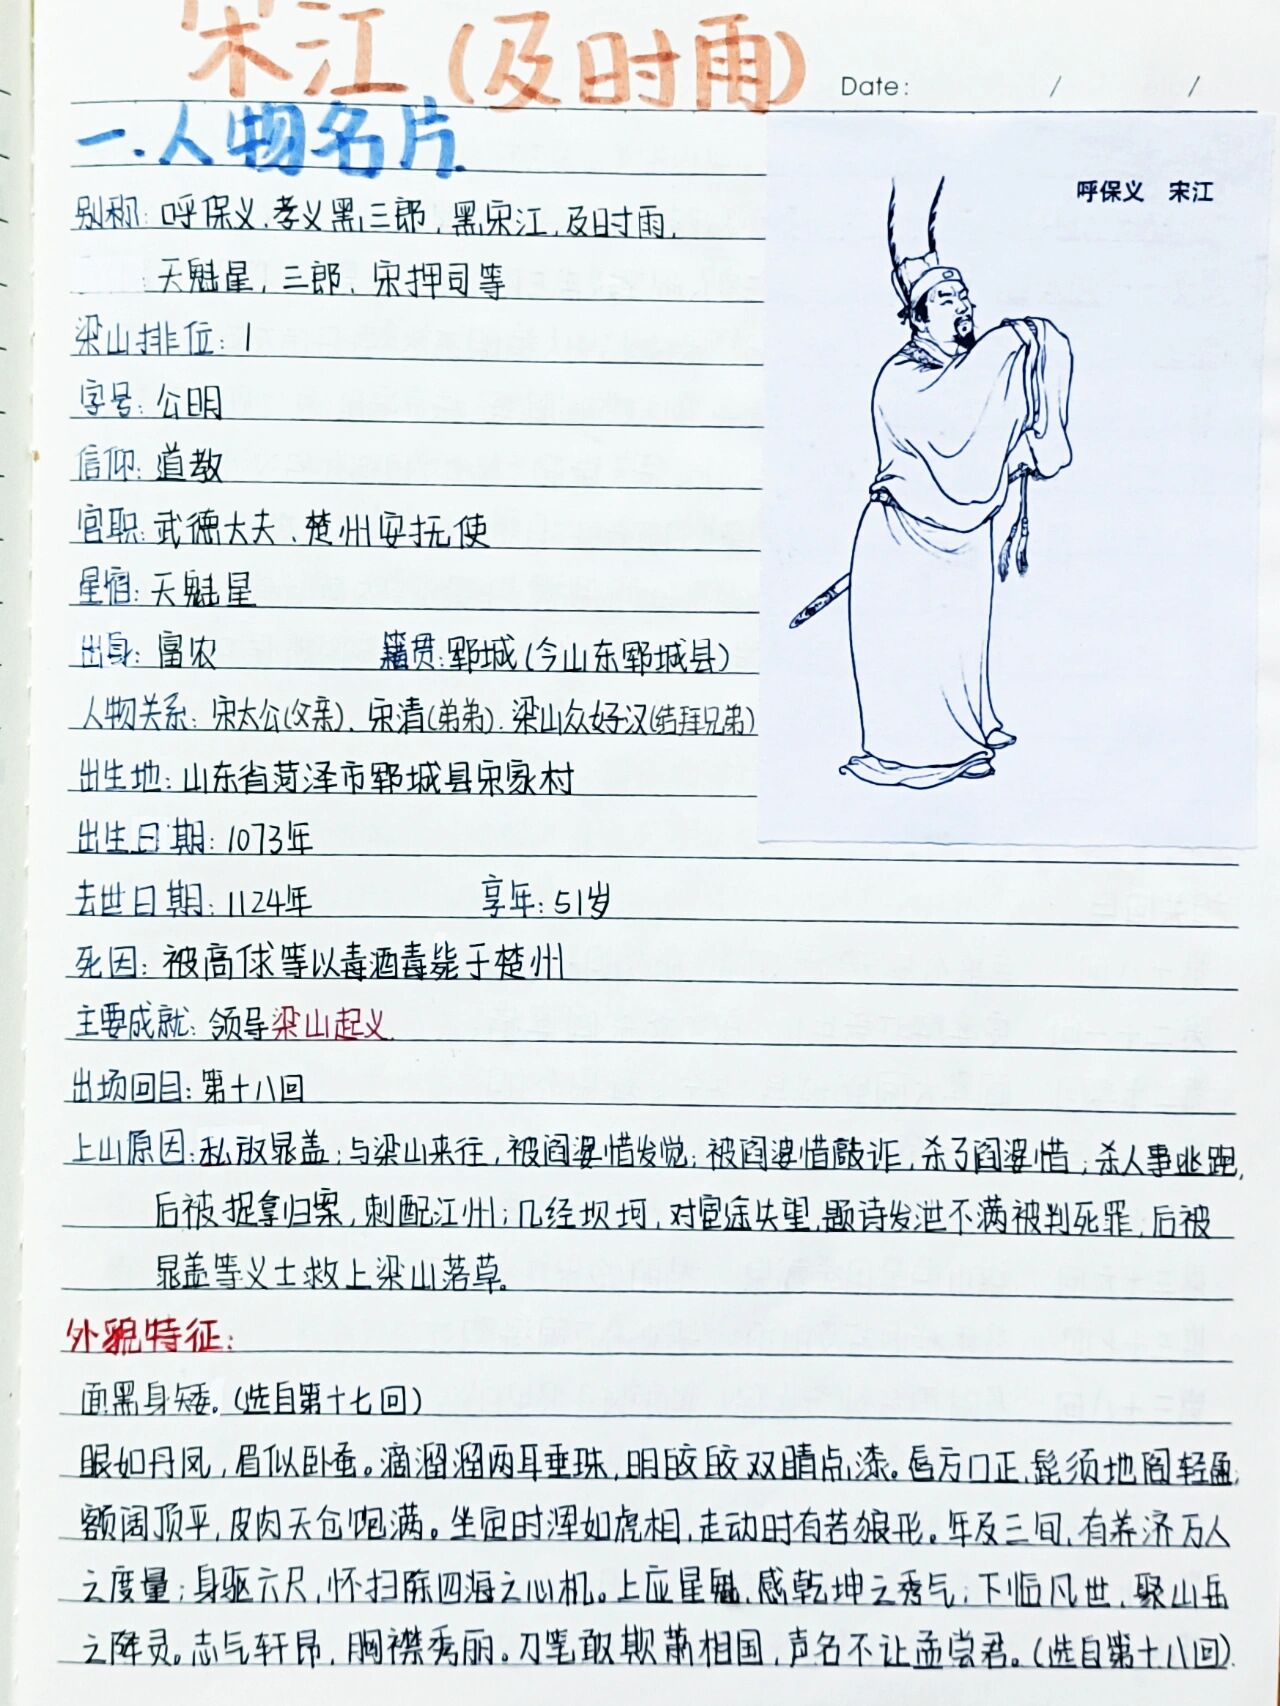 宋江(及时雨)
Date: / /
一.人物名片.
呼保义 宋江
别称:呼保义.孝义黑三郎,黑宋江,及时雨,
天魁星,三郎,宋押司等
梁山排位:1
字号:公明
信仰:道教
官职:武德大夫、楚州安抚使
星宿:天魁星
出身:富农 籍贯:郓城(今山东郓城县)
人物关系:宋太公(父亲)、宋清(弟弟).梁山众好汉(结拜兄弟)
出生地:山东省菏泽市郓城县宋家村
出生日期:1073年
去世日期:1124年 享年:51岁
死因:被高俅等以毒酒毒毙于楚州
主要成就:领导梁山起义.
出场回目:第十八回
上山原因:私放晁盖;与梁山来往,被阎婆惜发觉;被阎婆惜敲诈,杀了阎婆惜;杀人事逃跑,
后被捉拿归案,刺配江州;几经坝坷,对官途失望,题诗发泄不满被判死罪,后被
晁盖等义士救上梁山落草。
外貌特征:
面黑身矮。(选自第十七回)
眼如丹凤,眉似卧蚕。滴溜溜两耳垂珠,明皎皎双睛点漆。唇方口正,髭须地阁轻盈;
额阔顶平,皮肉天仓饱满。坐定时浑如虎相,走动时有若狼形。年及三旬,有养济万人
之度量;身驱六尺,怀扫除四海之心机。上应星魁,感乾坤之秀气;下临凡世,聚山岳
之降灵。志气轩昂,胸襟秀丽。刀笔敢欺萧相国,声名不让孟尝君。(选自第十八回)